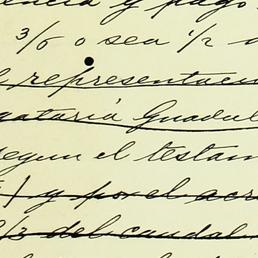 y pago
3/6 o sea 1/2
representaci
gataria Guadul
segun el testam
y por el acr
2/3 del caudal